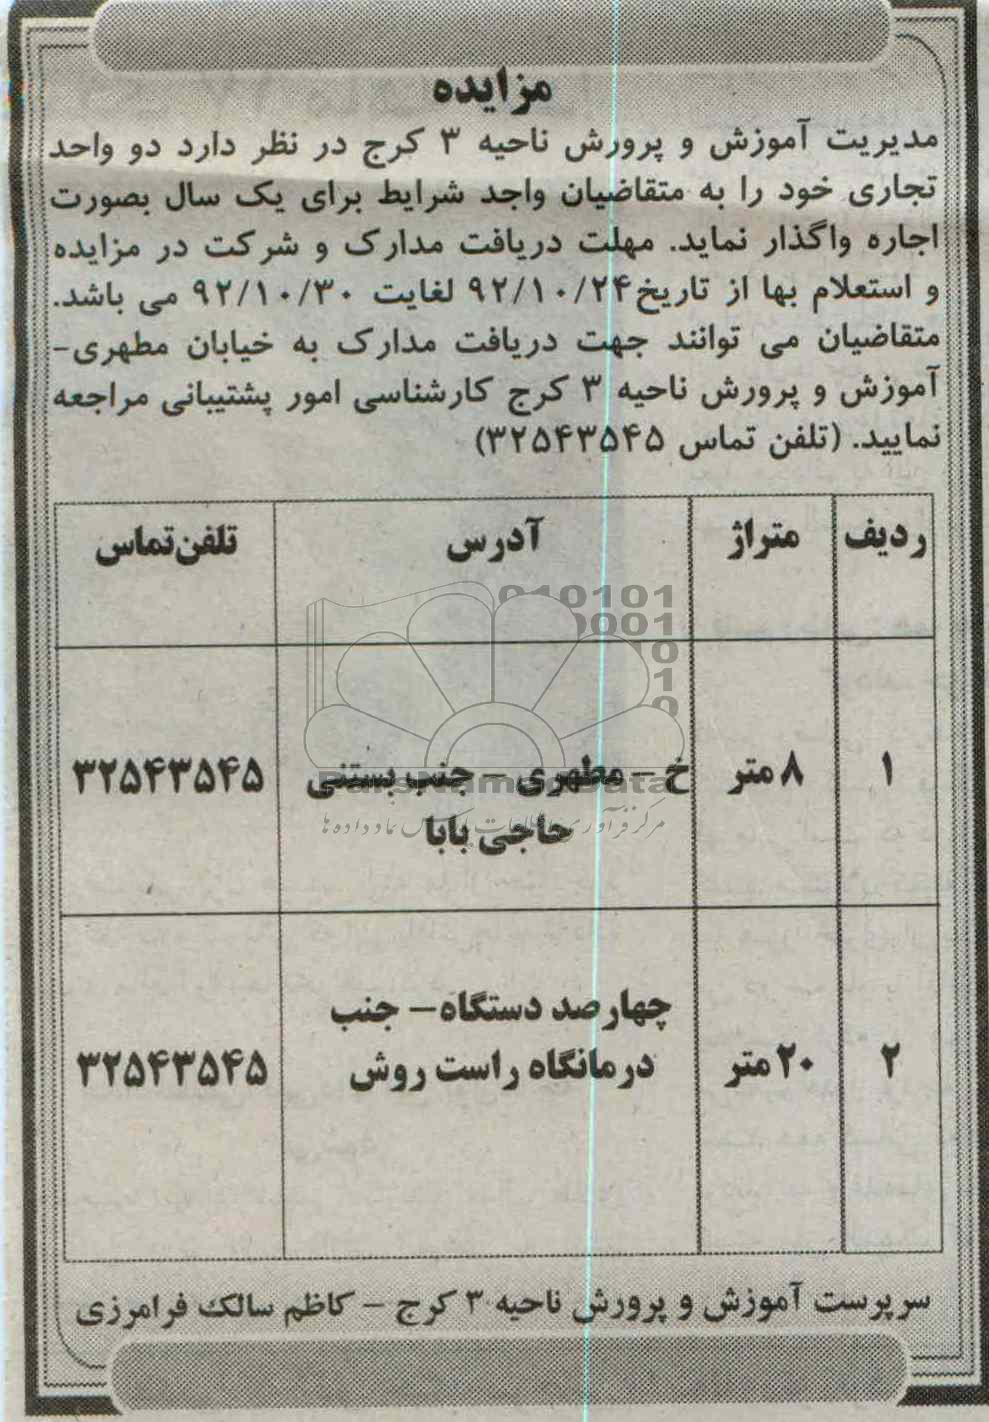 مزایده
مدیریت آموزش و پرورش ناحیه ۳ کرج در نظر دارد دو واحد
تجاری خود را به متقاضیان واجد شرایط برای یک سال بصورت
اجاره واگذار نماید. مهلت دریافت مدارک و شرکت در مزایده
و استعلام بها از تاریخ ۹۲/۱۰/۲۴ لغایت ۹۲/۱۰/۳۰ می باشد.
متقاضیان می توانند جهت دریافت مدارک به خیابان مطهری-
آموزش و پرورش ناحیه ۳ کرج کارشناسی امور پشتیبانی مراجعه
نمایید. (تلفن تماس ۳۲۵۴۳۵۴۵)
ردیف متراژ آدرس تلفن تماس
۱ ۸ متر خ - مطهری - جنب بستنی ۳۲۵۴۳۵۴۵
حاجی بابا
۲ ۲۰ متر چهارصد دستگاه- جنب
درمانگاه راست روش ۳۲۵۴۳۵۴۵
سرپرست آموزش و پرورش ناحیه ۳ کرج - کاظم سالک فرامرزی
010101
0001
10
1
0
ParsNamadData
مرکز فرآوری اطلاعات پارس نماد داده ها